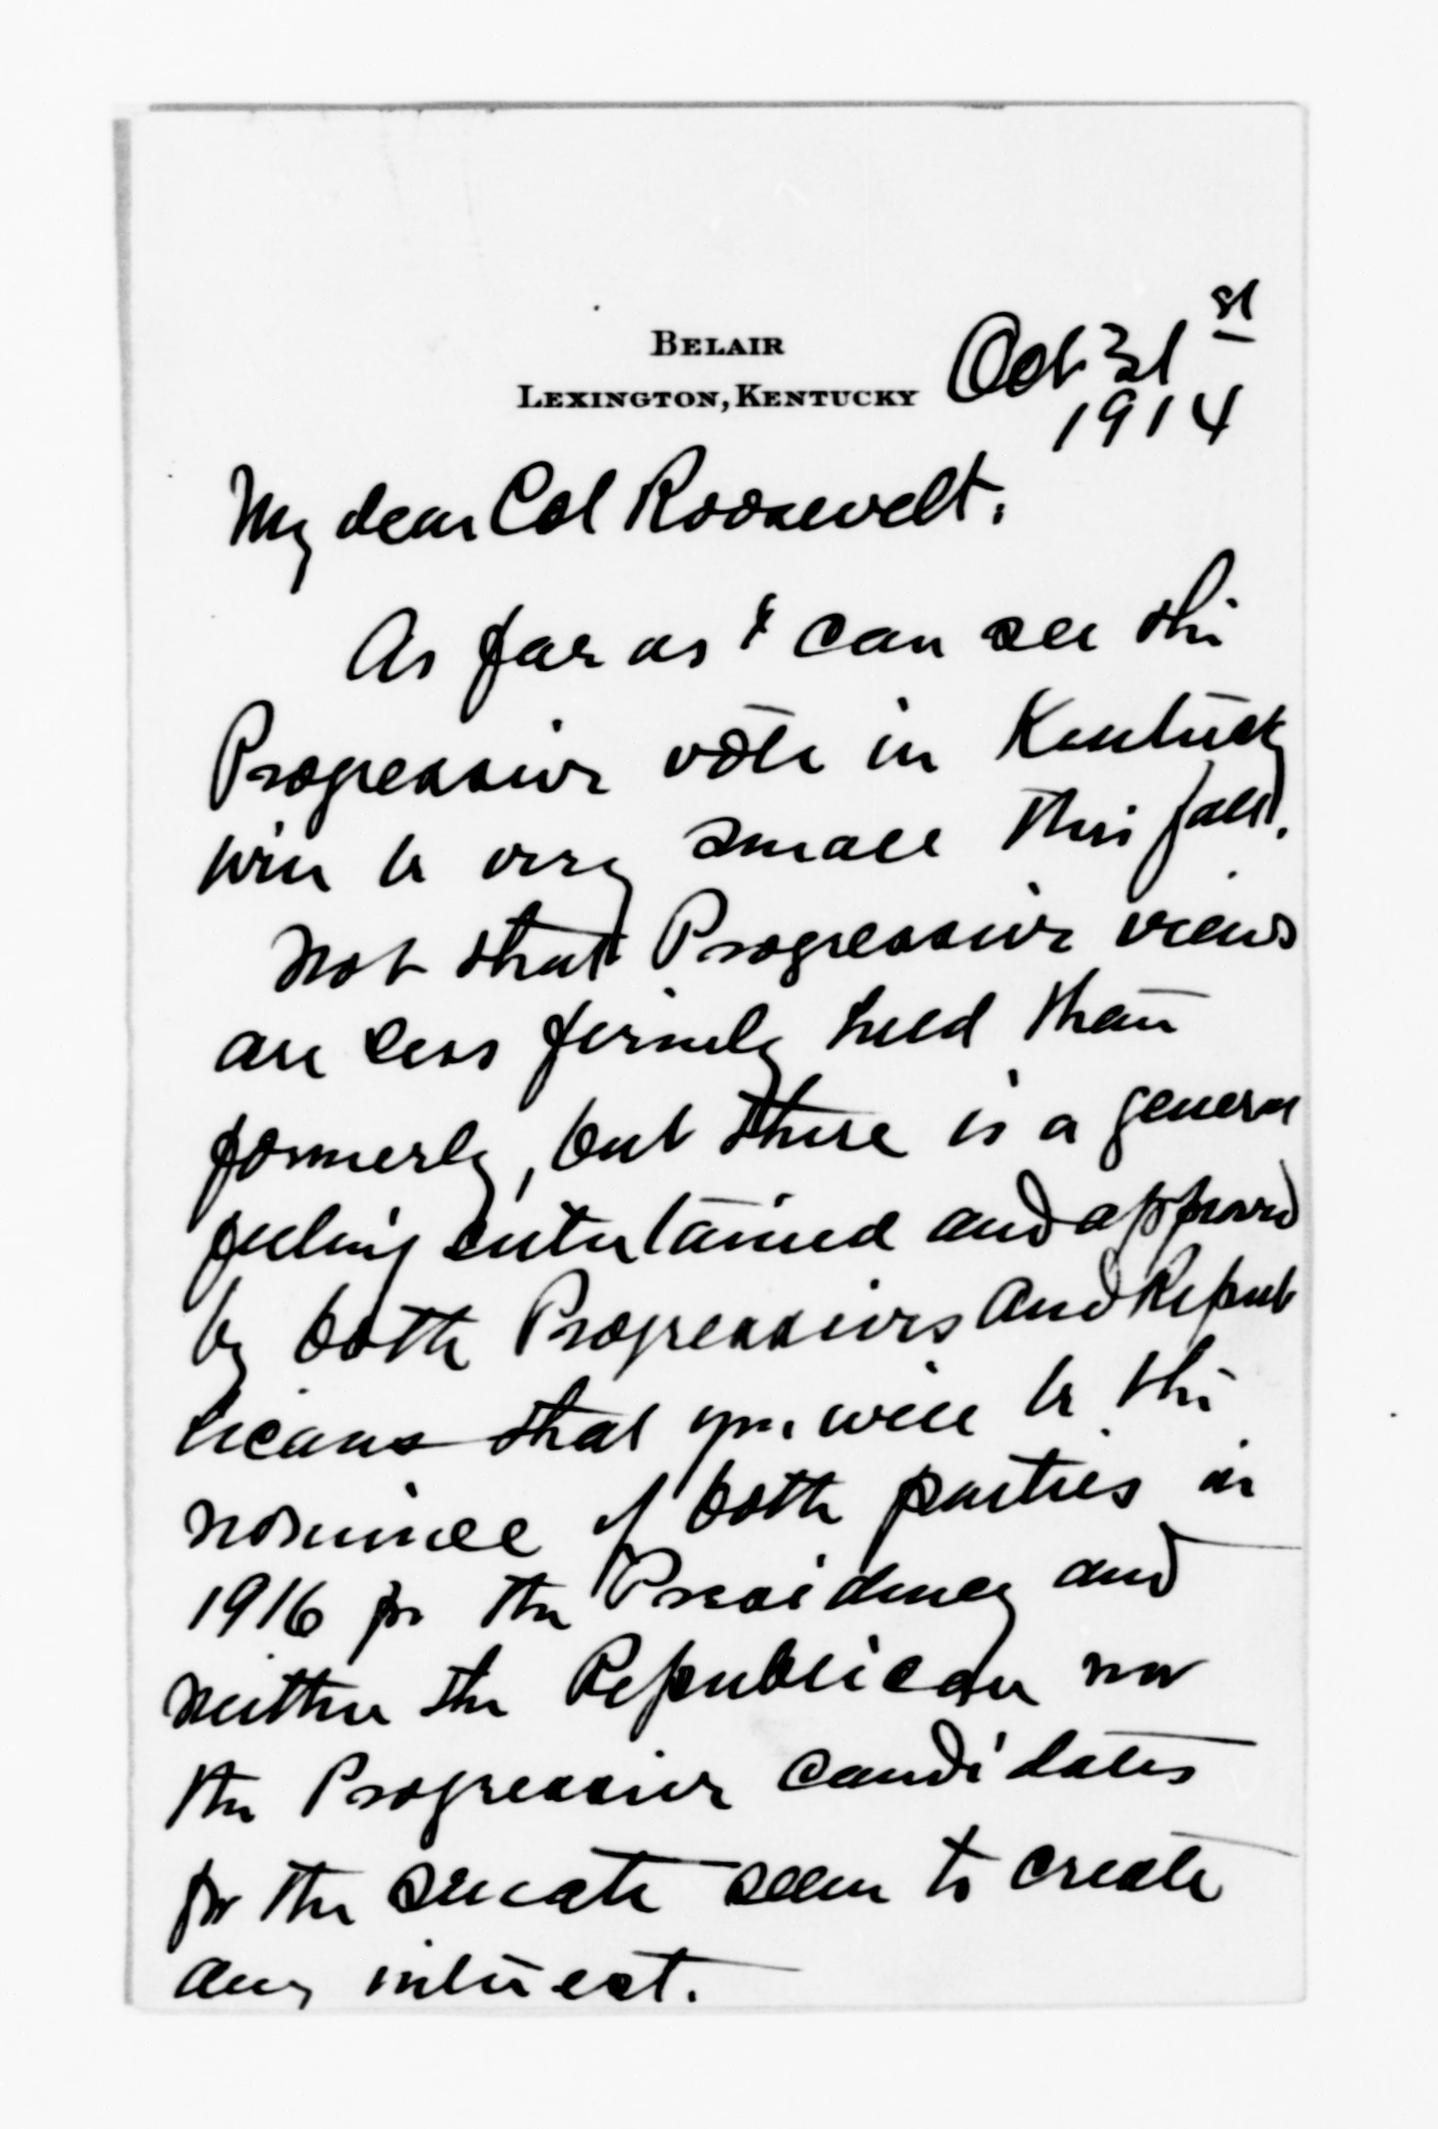 BELAIR
LEXINGTON, KENTUCKY
Oct 31st
1914
My dear Col Roosevelt:
As far as I can see the
Progressive vote in Kentucky
will be very small this fall.
Not that Progressive views
are less firmly held than
formerly, but there is a general
feeling entertained and approved
by both Progressives and Repub
licans that you will be the
nominee of both parties in
1916 for the Presidency and
neither the Republican nor
the Progressive candidates
for the senate seem to create
any interest.